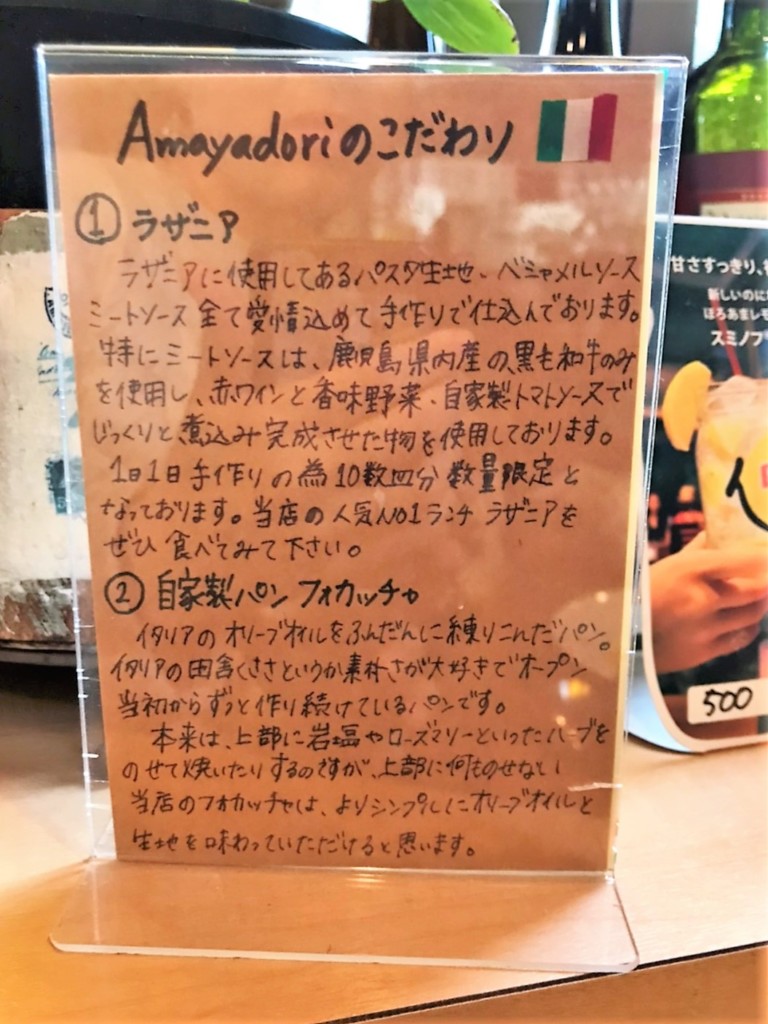 Amayadoriのこだわり
① ラザニア
ラザニアに使用してあるパスタ生地、ベシャメルソース
ミートソース全て愛情込めて手作りで仕込んでおります。
特にミートソースは、鹿児島県内産の黒毛和牛のみ
を使用し、赤ワインと香味野菜、自家製トマトソースで
じっくりと煮込み完成させた物を使用しております。
1日1日手作りの為10数皿分 数量限定と
なっております。当店の人気NO1ランチ ラザニアを
ぜひ食べてみて下さい。
② 自家製パン フォカッチャ
イタリアのオリーブオイルをふんだんに練りこんだパン。
イタリアの田舎くささというか素朴さが大好きでオープン
当初からずっと作り続けているパンです。
本来は、上部に岩塩やローズマリーといったハーブを
のせて焼いたりするのですが、上部に何ものせない
当店のフォカッチャは、よりシンプルにオリーブオイルと
生地を味わっていただけると思います。
甘さすっきり、
新しいのに
ほろあまレモ
スミノフ
500